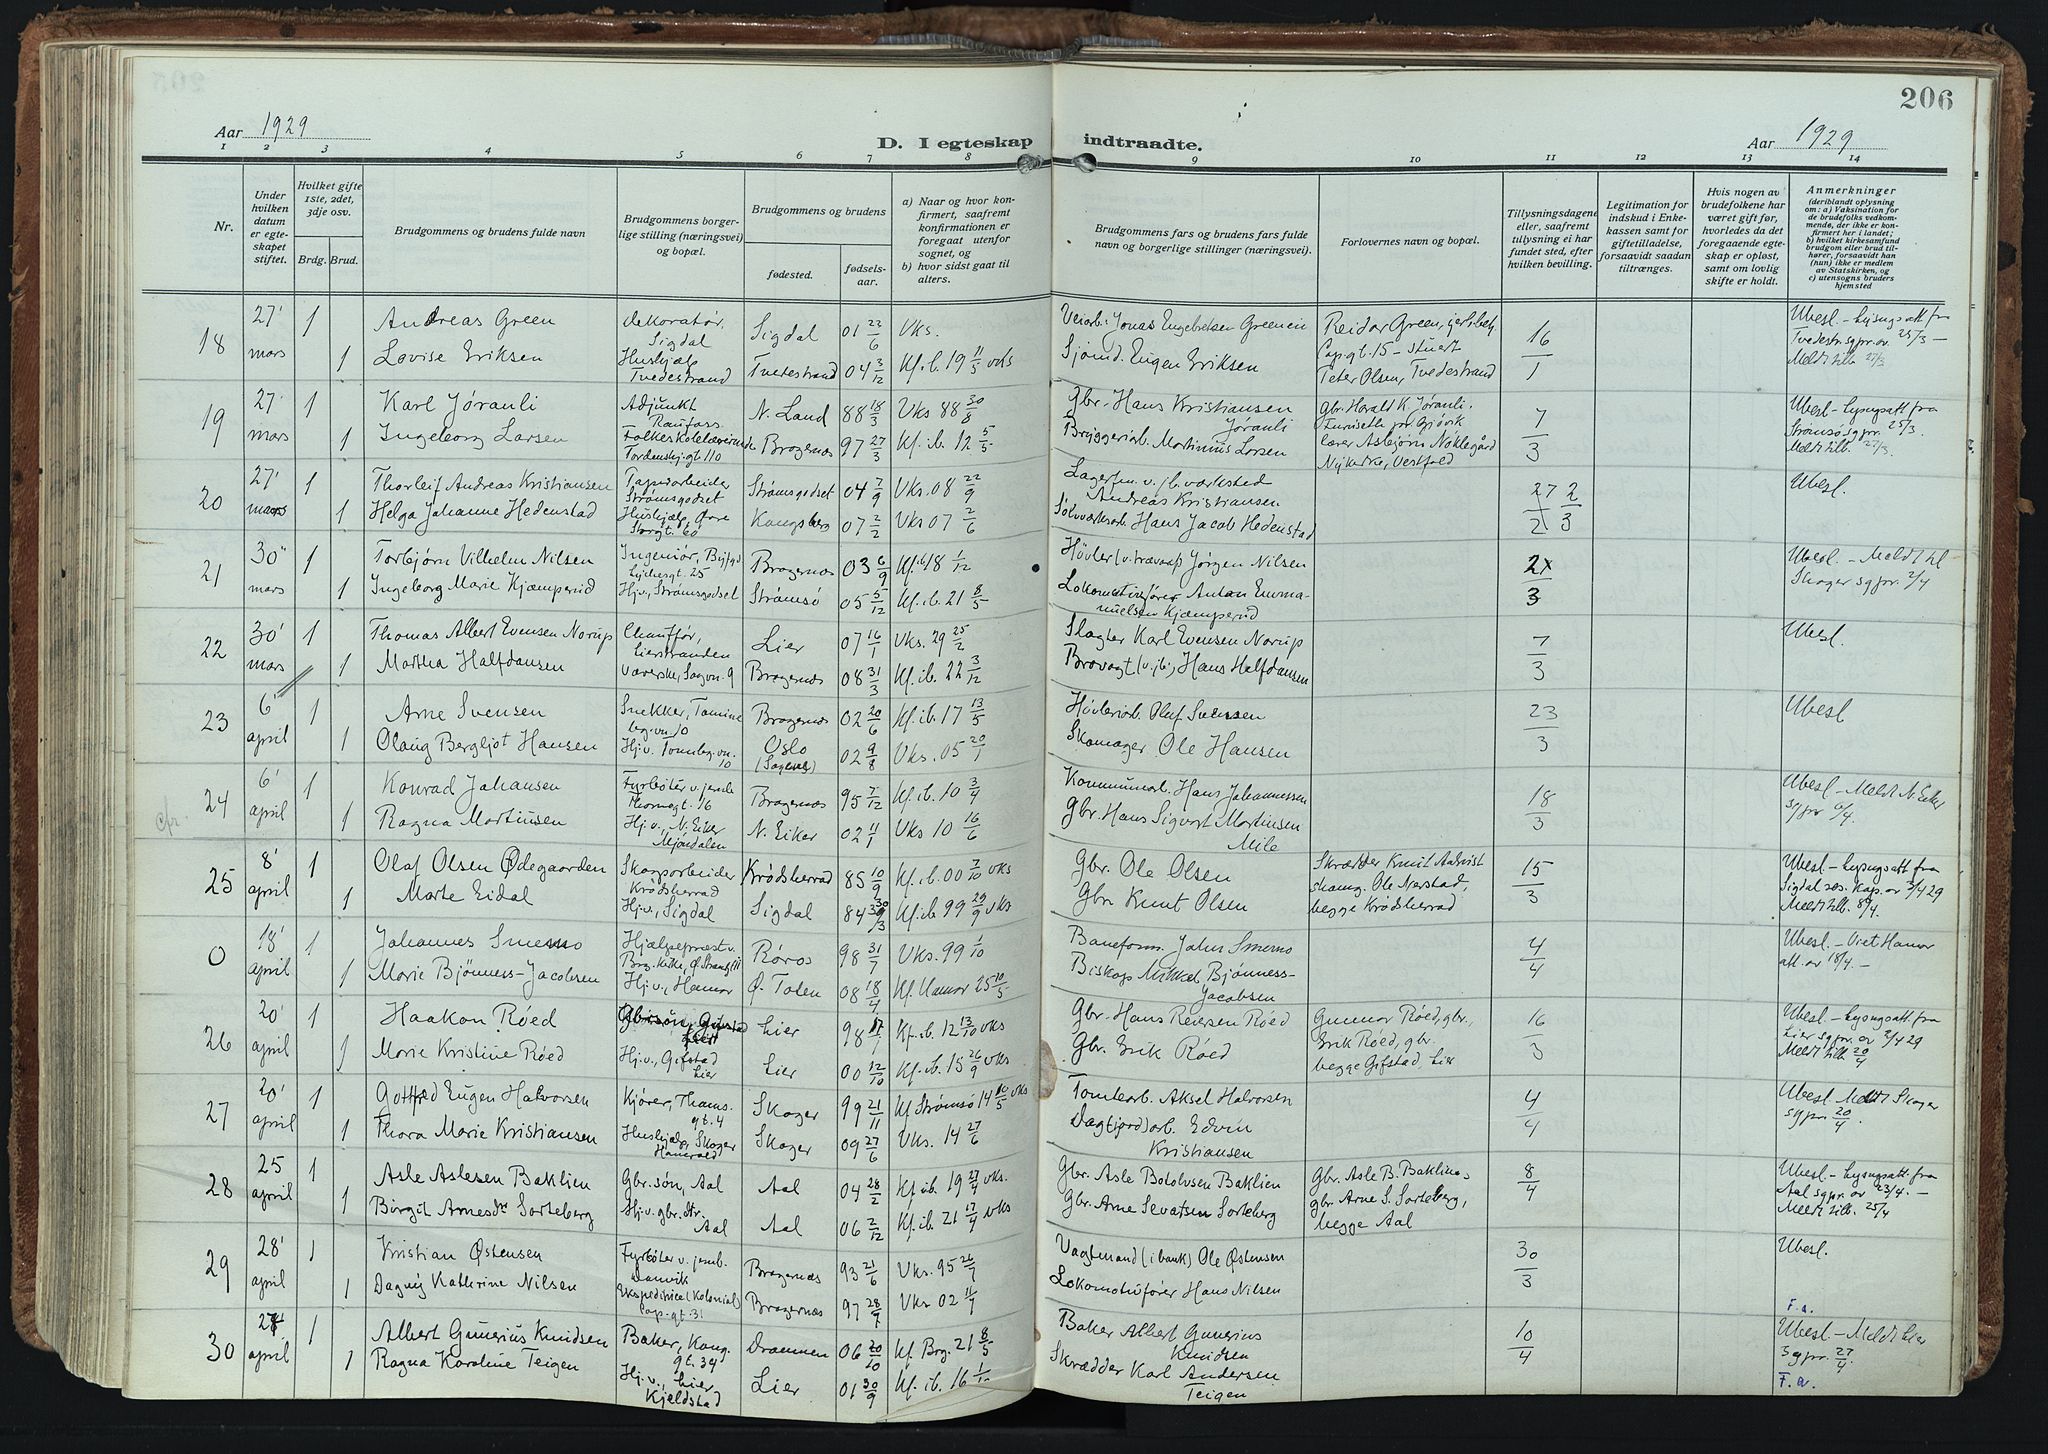 206
Aar 1929
D. I egteskap indtraadte.
Aar 1929
1 2 3 4 5 6 7 8 9 10 11 12 13 14
Nr.
Under hvilken datum er egteskapet stiftet.
Hvilket gifte 1ste, 2det, 3dje osv.
Brdg. Brud.
Brudgommens og brudens fulde navn
Brudgommens borgerlige stilling (næringsvei) og bopæl.
Brudgommens og brudens
fødested.
fødselsaar.
a) Naar og hvor konfirmert, saafremt konfirmationen er foregaat utenfor sognet, og
b) hvor sidst gaat til alters.
Brudgommens fars og brudens fars fulde navn og borgerlige stillinger (næringsvei).
Forlovernes navn og bopæl.
Tillysningsdagene eller, saafremt tillysning ei har fundet sted, efter hvilken bevilling.
Legitimation for indskud i Enkekassen samt for giftetilladelse, forsaavidt saadan tiltrænges.
Hvis nogen av brudefolkene har været gift før, hvorledes da det foregaaende egteskap er opløst, samt om lovlig skifte er holdt.
Anmerkninger
(deriblandt oplysning om: a) Vaksination for de brudefolks vedkommende, der ikke er konfirmert her i landet; b) hvilket kirkesamfund brudgom eller brud tilhører, forsaavidt han (hun) ikke er medlem av Statskirken, og c) utensogns bruders hjemsted
18 27' mars 1 Andreas Green dekoratør, Sigdal Sigdal 01 22/6 Vks. Veiarb. Jonas Engebretsen Green Reidar Green, Cap.gt. 15 - 16/1 Ubesl. - Lysngsatt fra Tvedestr. sgpr. av 25/3 - Meldt tilb. 27/3
1 Lovise Eriksen Hushjælp Tvedestrand Tvedestrand 04 3/12 Kf. ib. 19 11/5 vks Sjømd. Eugen Eriksen Peter Olsen, Tvedestrand
19 27' mars 1 Karl Jóranli Adjunkt Raufoss N. Land 88 18/3 Vks 88 30/8 Gbr. Hans Kristiansen Jóranli Gbr. Harald K. Jóranli, Furuseth pr Gjøvik 7/3 Ubesl - Lysngsatt fra Strømsø sgpr. 25/3. Meldt tilb. 27/3.
1 Ingeborg Larsen Folkeskolelærerinde Tordenskj.gt. 110 Bragernæs 97 27/3 Kf. ib. 12 5/5 Bryggeriarb. Martinius Larsen lærer Asbjørn Nøklegård Nykirke, Vestfold
20 27' mars 1 Thorleif Andreas Kristiansen Papirarbeider Strømsgodset Strømsgodset 04 7/9 Vks. 08 22/9 Lagerfm. v. jb. verksted Andreas Kristiansen 27/2 2/3 Ubesl.
1 Helga Johanne Hedenstad Hushjælp, Øvre Storgt. 60 Kongsberg 07 2/2 Vks 07 2/6 Sølvverksarb. Hans Jacob Hedenstad
21 30' mars 1 Torbjørn Vilhelm Nilsen Ingeniør, Lychesgt. 25 Bragernæs 03 6/9 Kf. ib 18 1/12 Høvler Jørgen Nilsen Ubesl - Meldt til Skoger sgpr. 2/4
1 Ingeborg Marie Kjæmperud Hj.v., Strømsgodset Strømsø 05 5/12 Kf. ib. 21 8/5 Lokomotivfører Anton Emmanuelsen Kjæmperud
22 30' mars 1 Thomas Albert Evensen Norup Chauffør, Lierstranden Lier 07 16/1 Vks. 29 25/2 Slagter Karl Evensen Norup 7/3 Ubesl.
1 Martha Halfdansen Væverske, Sagvn. 9 Bragernæs 08 31/3 Kf. ib. 22 3/12 Brovagt (v. jb.) Hans Halfdansen
23 6' april 1 Arne Svensen Snekker, Tømmeleg.vn. 10 Bragernæs 02 20/6 Kf. ib. 17 13/5 Høvleriarb. Olaf Svensen 23/3 Ubesl
1 Olaug Bergljot Hansen Hj.v. Tømleg.vn. 10 Oslo 02 9/8 Vks. 05 20/1 Skomager Ole Hansen
cfr. 24 6' april 1 Konrad Johansen Fyrbøter v. jernb. Thornegt. 16 Bragernæs 95 7/12 Kf. ib. 10 3/4 Kommunearb. Hans Johannessen 18/3 Ubesl - Meldt N. Eiker sgpr 6/4.
1 Ragna Martinsen Hj.v., N. Eiker Mjøndalen N. Eiker 02 11/1 Vks 10 16/6 Gbr. Hans Sigvart Martinsen Mile
25 8' april 1 Olaf Olsen Ødegaarden Skogsarbeider Krødsherrad Krødsherrad 85 10/9 Kf. ib. 00 7/10 vks Gbr. Ole Olsen Skrædder Knut Aalvist skomg. Ole Nerstad, begge Krødsherrad 15/3 Ubesl - Lysngsatt fra Sigdal res. kap. av 3/4 29 Meldt tilb. 8/4.
1 Marte Eidal Hj.v., Sigdal Sigdal 84 Kf. ib 99 29/9 vks Gbr. Knut Olsen
0 18' april 1 Johannes Smemo Hjælpeprest v. Brg. kirke, Røros 98 31/7 Vks. 99 1/10 Baneform. John Smemo 4/4 Ubesl - Viet Hamar att. av 18/4 -
1 Marie Bjønness-Jacobsen Hj.v., Hamar Ø. Toten 08 18/4 Kf. Hamar 25 10/5 Biskop Mikkel Bjønness-Jacobsen
26 20' april 1 Haakon Róed Lier 98 Kf. ib. 12 13/10 vks Gbr. Hans Reiersen Róed Gunnar Róed, gbr., Erik Róed, gbr. begge Gifstad, Lier 16/3 Ubesl. - Lysngsatt fra Lier sgpr. av 2/4 29 Meldt tilb. 20/4
1 Marie Kristine Róed Hj.v., Gifstad Lier Lier 00 12/10 Kf. ib. 15 26/9 vks Gbr. Erik Róed
27 20' april 1 Gottfred Eugen Halvorsen Kjører, Thams.gt. 4 Skoger 99 21/11 Kf Strømsø 14 10/5 vks Tomtearb. Aksel Halvorsen 4/4 Ubesl - Meldt Skoger sgpr. 20/4
1 Thora Marie Kristiansen Hushjælp, Skoger Skoger 09 27/6 Vks. 14 27/6 Dagfjord)arb. Edvin Kristiansen
28 25 april 1 Asle Aslesen Baklien Gbr.søn, Aal Aal 04 28/2 Kf. ib. 19 27/4 vks. Gbr. Asle Botolvsen Baklien Gbr. Asle B. Baklien, gbr. Arne S. Sorteberg, begge Aal 8/4 Ubesl - Lysngsatt. fra Aal sgpr. av 23/4. - Meldt tilb. 25/4
1 Birgit Arnesdtr Sorteberg Hj.v. gbr.dtr. Aal Aal 06 2/12 Kf. ib. 21 17/4 vks Gbr. Arne Sevatsen Sorteberg
29 28' april 1 Kristian Østensen Fyrbøter v. jernb. Danvik Bragernæs 93 21/6 Vks. 95 26/9 Vagtmand (i bank) Ole Østensen 30/3 Ubesl.
1 Dagny Kathrine Nilsen Ekspeditrice (kolonial) Cap.gt. 31 Bragernæs 97 28/7 Vks 02 11/7 Lokomotivfører Hans Nilsen F.a.
30 27 april 1 Albert Gunerius Knudsen Baker, Kong.gt. 34 Drammen 06 20/10 Kf Brg. 21 8/5 Baker Albert Gunerius Knudsen 10/4 Ubesl - Meldt Lier sgpr. 27/4.
1 Ragna Karoline Teigen Hj.v., Lier Kjeldstad Lier 01 30/9 Kf. ib. 16 Skrædder Karl Andersen Teigen F.a.